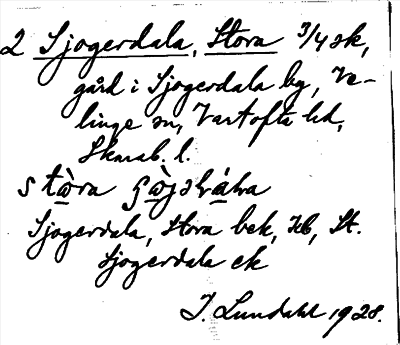 2 Sjogerdala, Stora 3/4 sk,
gård i Sjogerdala by, Va-
linge sn, Vartofta hd,
Skarab. l.
Sjogerdala, Stora bek, Jb, St.
Sjogerdala ek
I. Lundahl 1928.